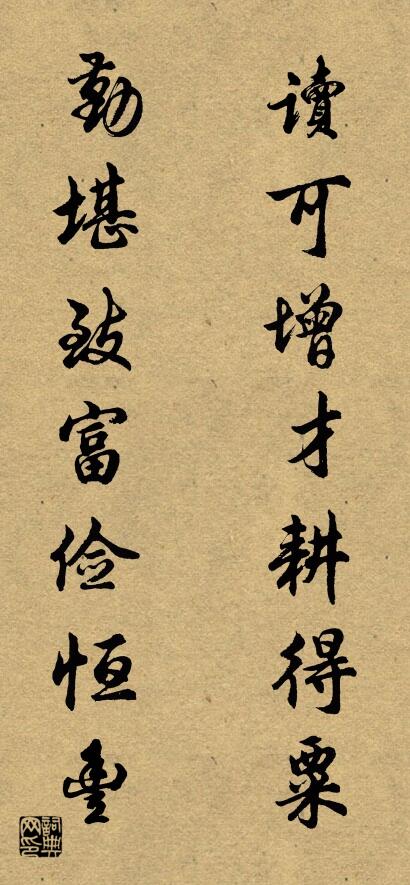 讀可增才耕得粟
勤堪致富俭恒豐
詞典網印